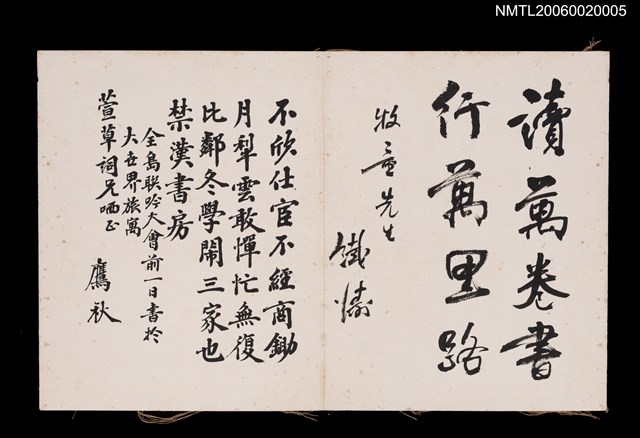 NMTL20060020005
讀萬卷書
行萬里路
牧童先生
鐵濤
不欣仕宦不經商鋤
月犁雲敢憚忙無復
比鄰冬學鬧三家也
禁漢書房
全島聯吟大會前一日書於
大吾界旅寓
萱草詞兄哂正
鷹秋